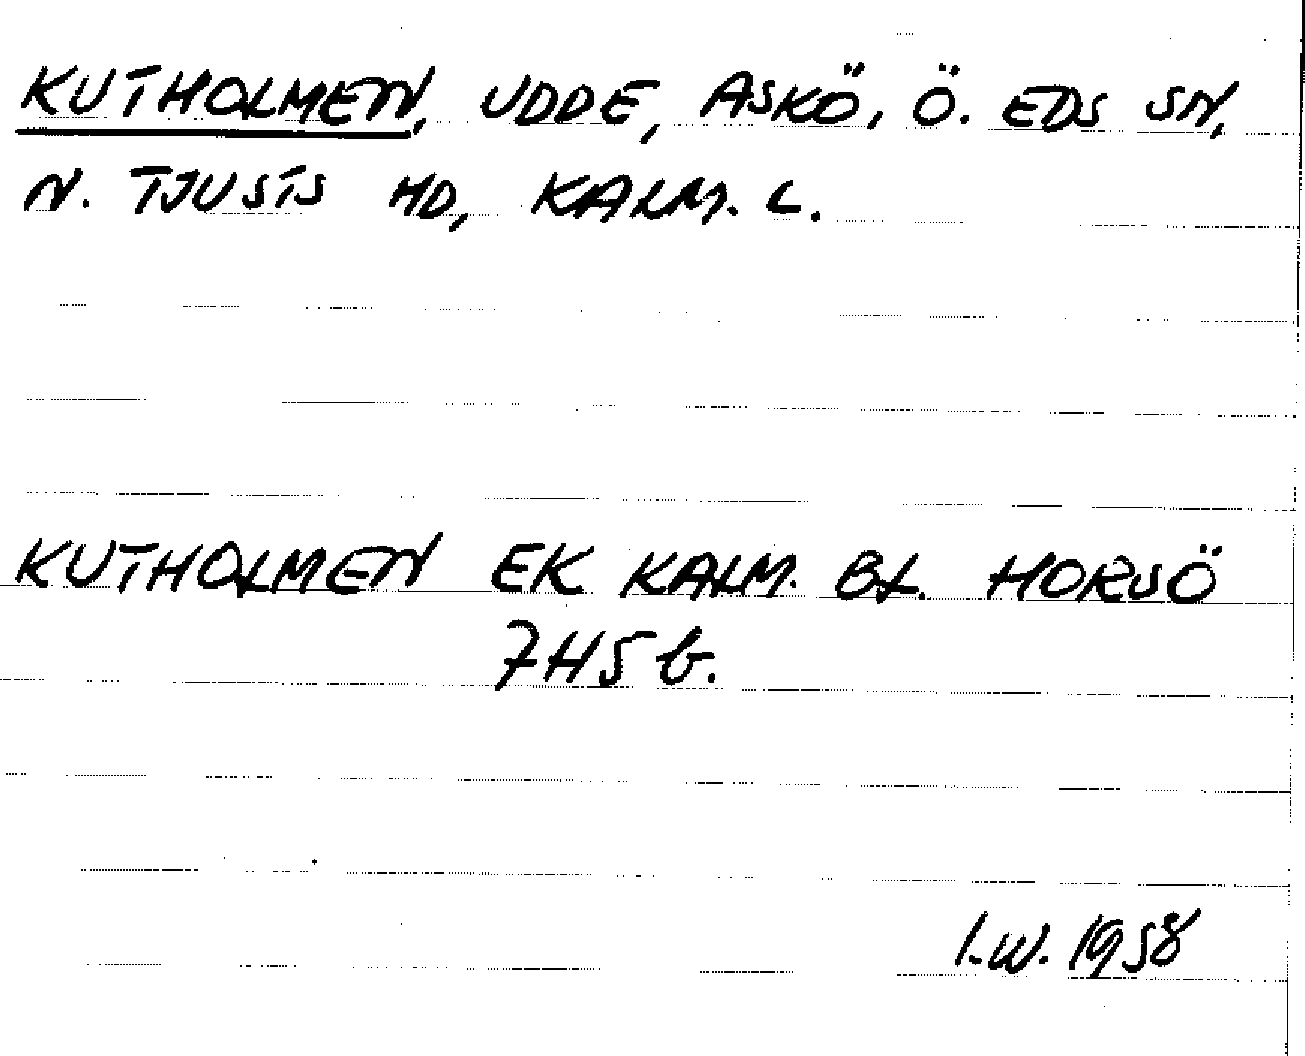 KUTHOLMEN, UDDE, ASKÖ, Ö. EDS SN,
N. TJUSTS HD, KALM. L.
KUTHOLMEN EK KALM. BL. HORSÖ
7H5b.
I.W. 1958